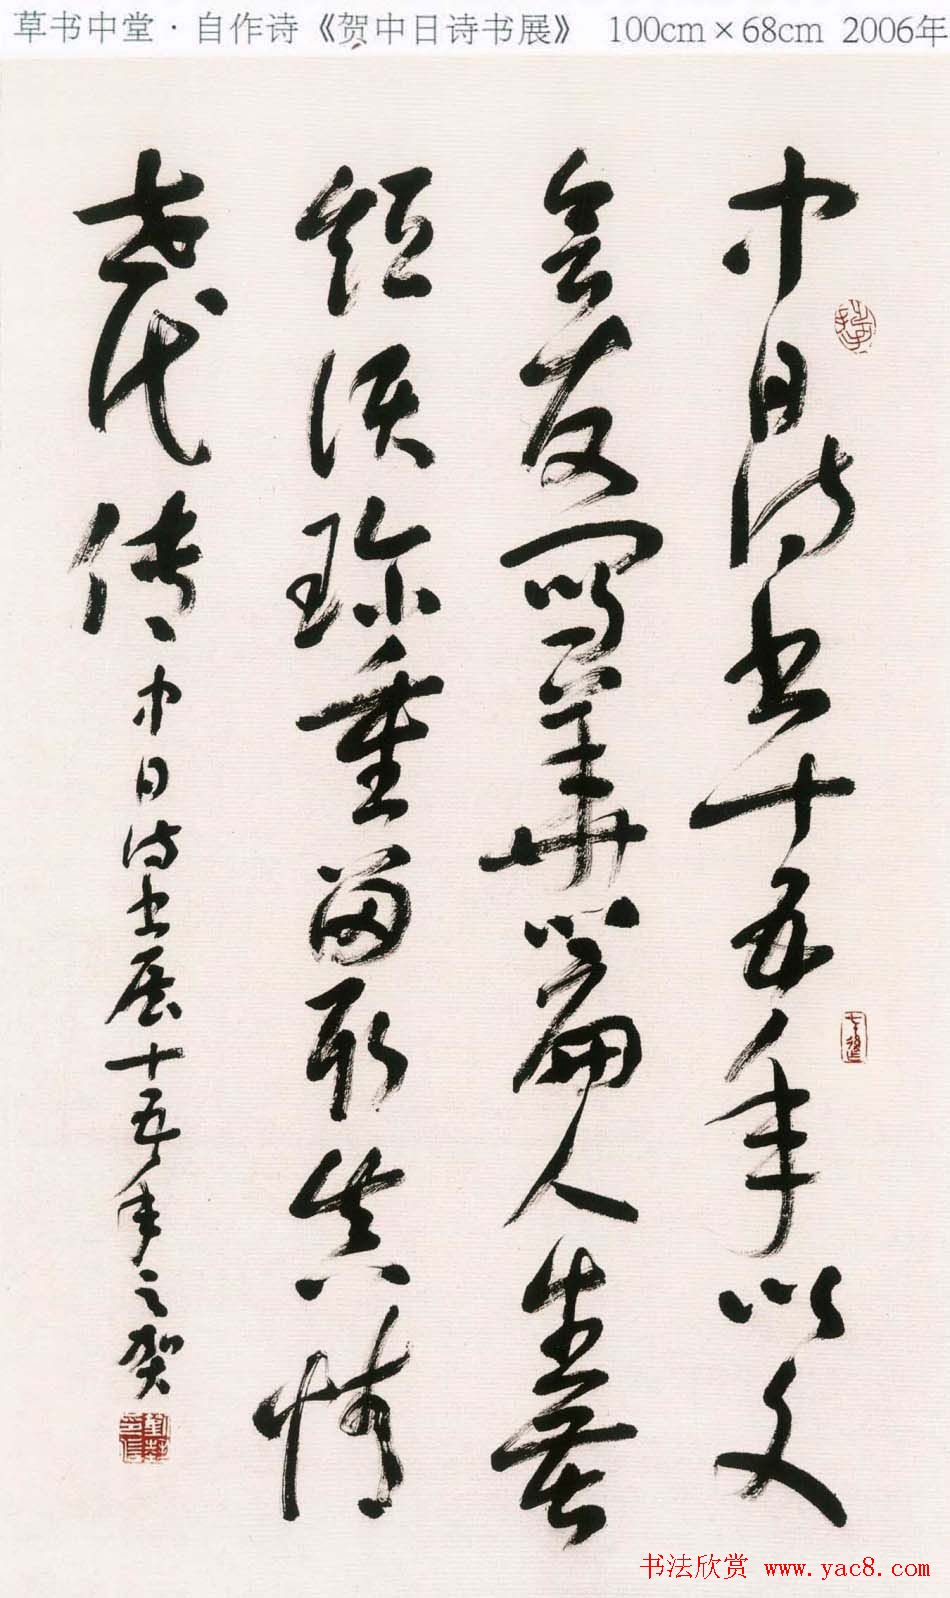 草书中堂·自作诗《贺中日诗书展》 100cm×68cm 2006年
中日诗书十五年以文
会友写华篇人生苦
短须珍重留取真情
世代传 中日诗书展十五年之贺
书法欣赏 www.yac8.com